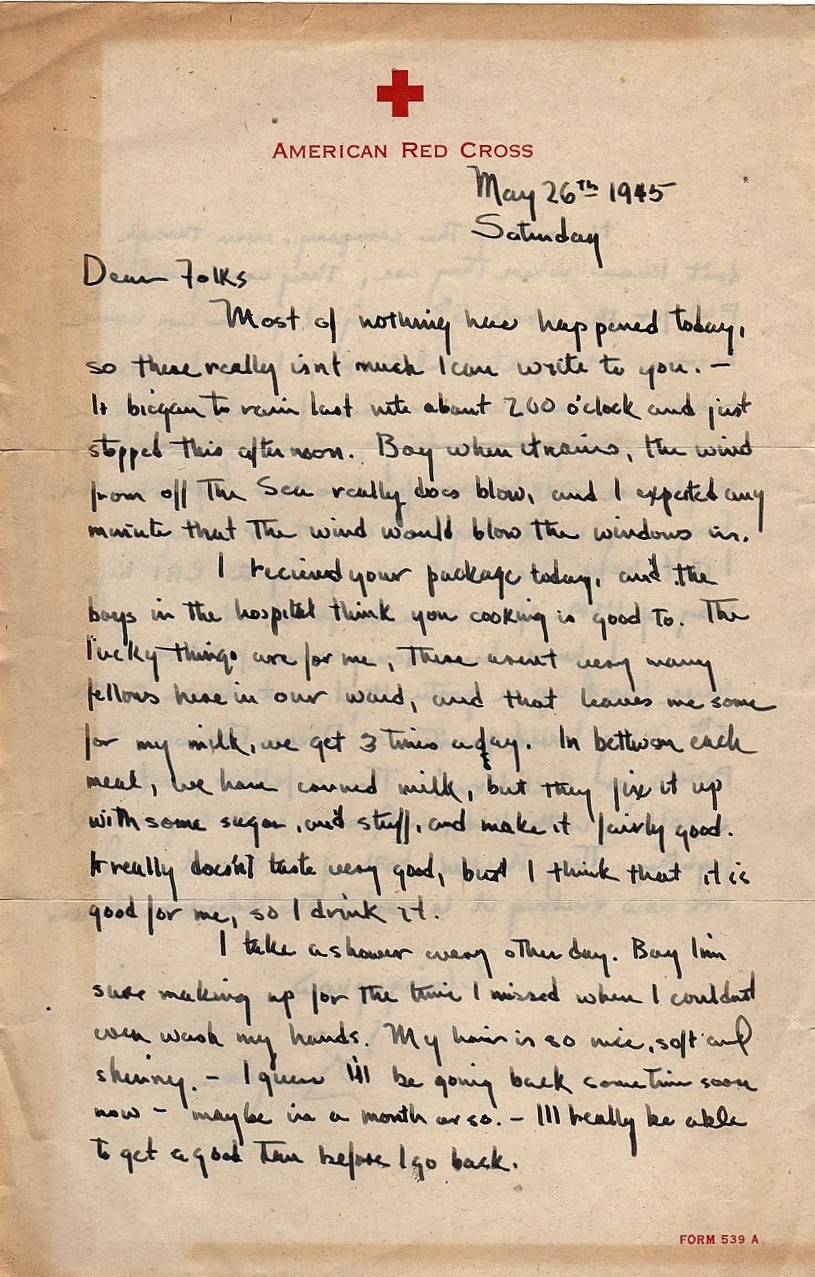 AMERICAN RED CROSS
May 26th 1945
Saturday
Dear Folks
Most of nothing has happened today,
so there really isnt much I can write to you. –
It began to rain last nite about 200 o'clock and just
stopped this afternoon. Boy when it rains, the wind
from off the Sea really does blow, and I expected any
minute that the wind would blow the windows in.
I recieved your package today, and the
boys in the hospital think you cooking is good to. The
lucky things are for me, there arent very many
fellows here in our ward, and that leaves me some
for my milk, we get 3 times a day. In between each
meal, we have canned milk, but they fix it up
with some sugar, and stuff, and make it fairly good.
It really doesn't taste very good, but I think that it is
good for me, so I drink it.
I take a shower every other day. Boy I'm
sure making up for the time I missed when I couldnt
even wash my hands. My hair is so nice, soft and
shinney. – I guess I'll be going back sometime soon
now – maybe in a month or so. – I'll really be able
to get a good tan before I go back.
FORM 539 A